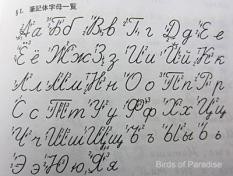 §1. 筆記体字母一覧
Аа Бб Вв Гг Дд Ее
Ёё Жж Зз Ии Йй Кк
Лл Мм Нн Оо Пп Рр
Сс Тт Уу Фф Хх Цц
Чч Шш Щщ ъ ы ь
Ээ Юю Яя
Birds of Paradise